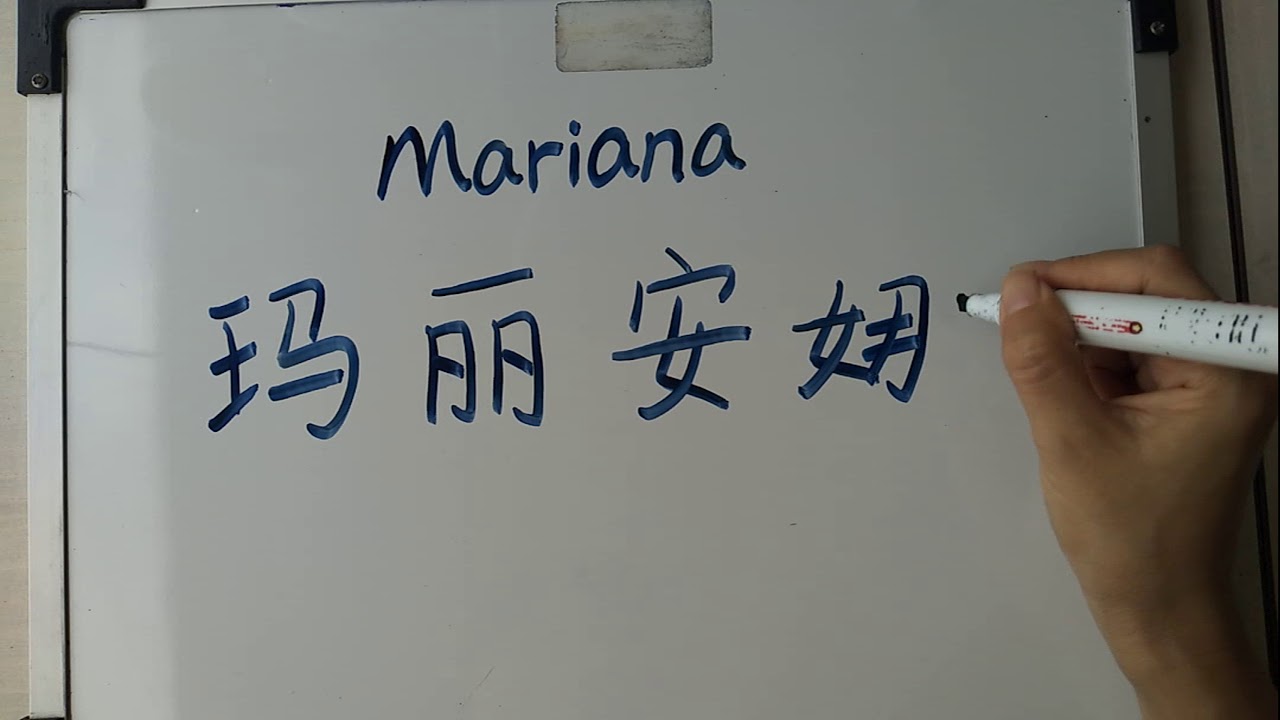 Mariana
玛丽安